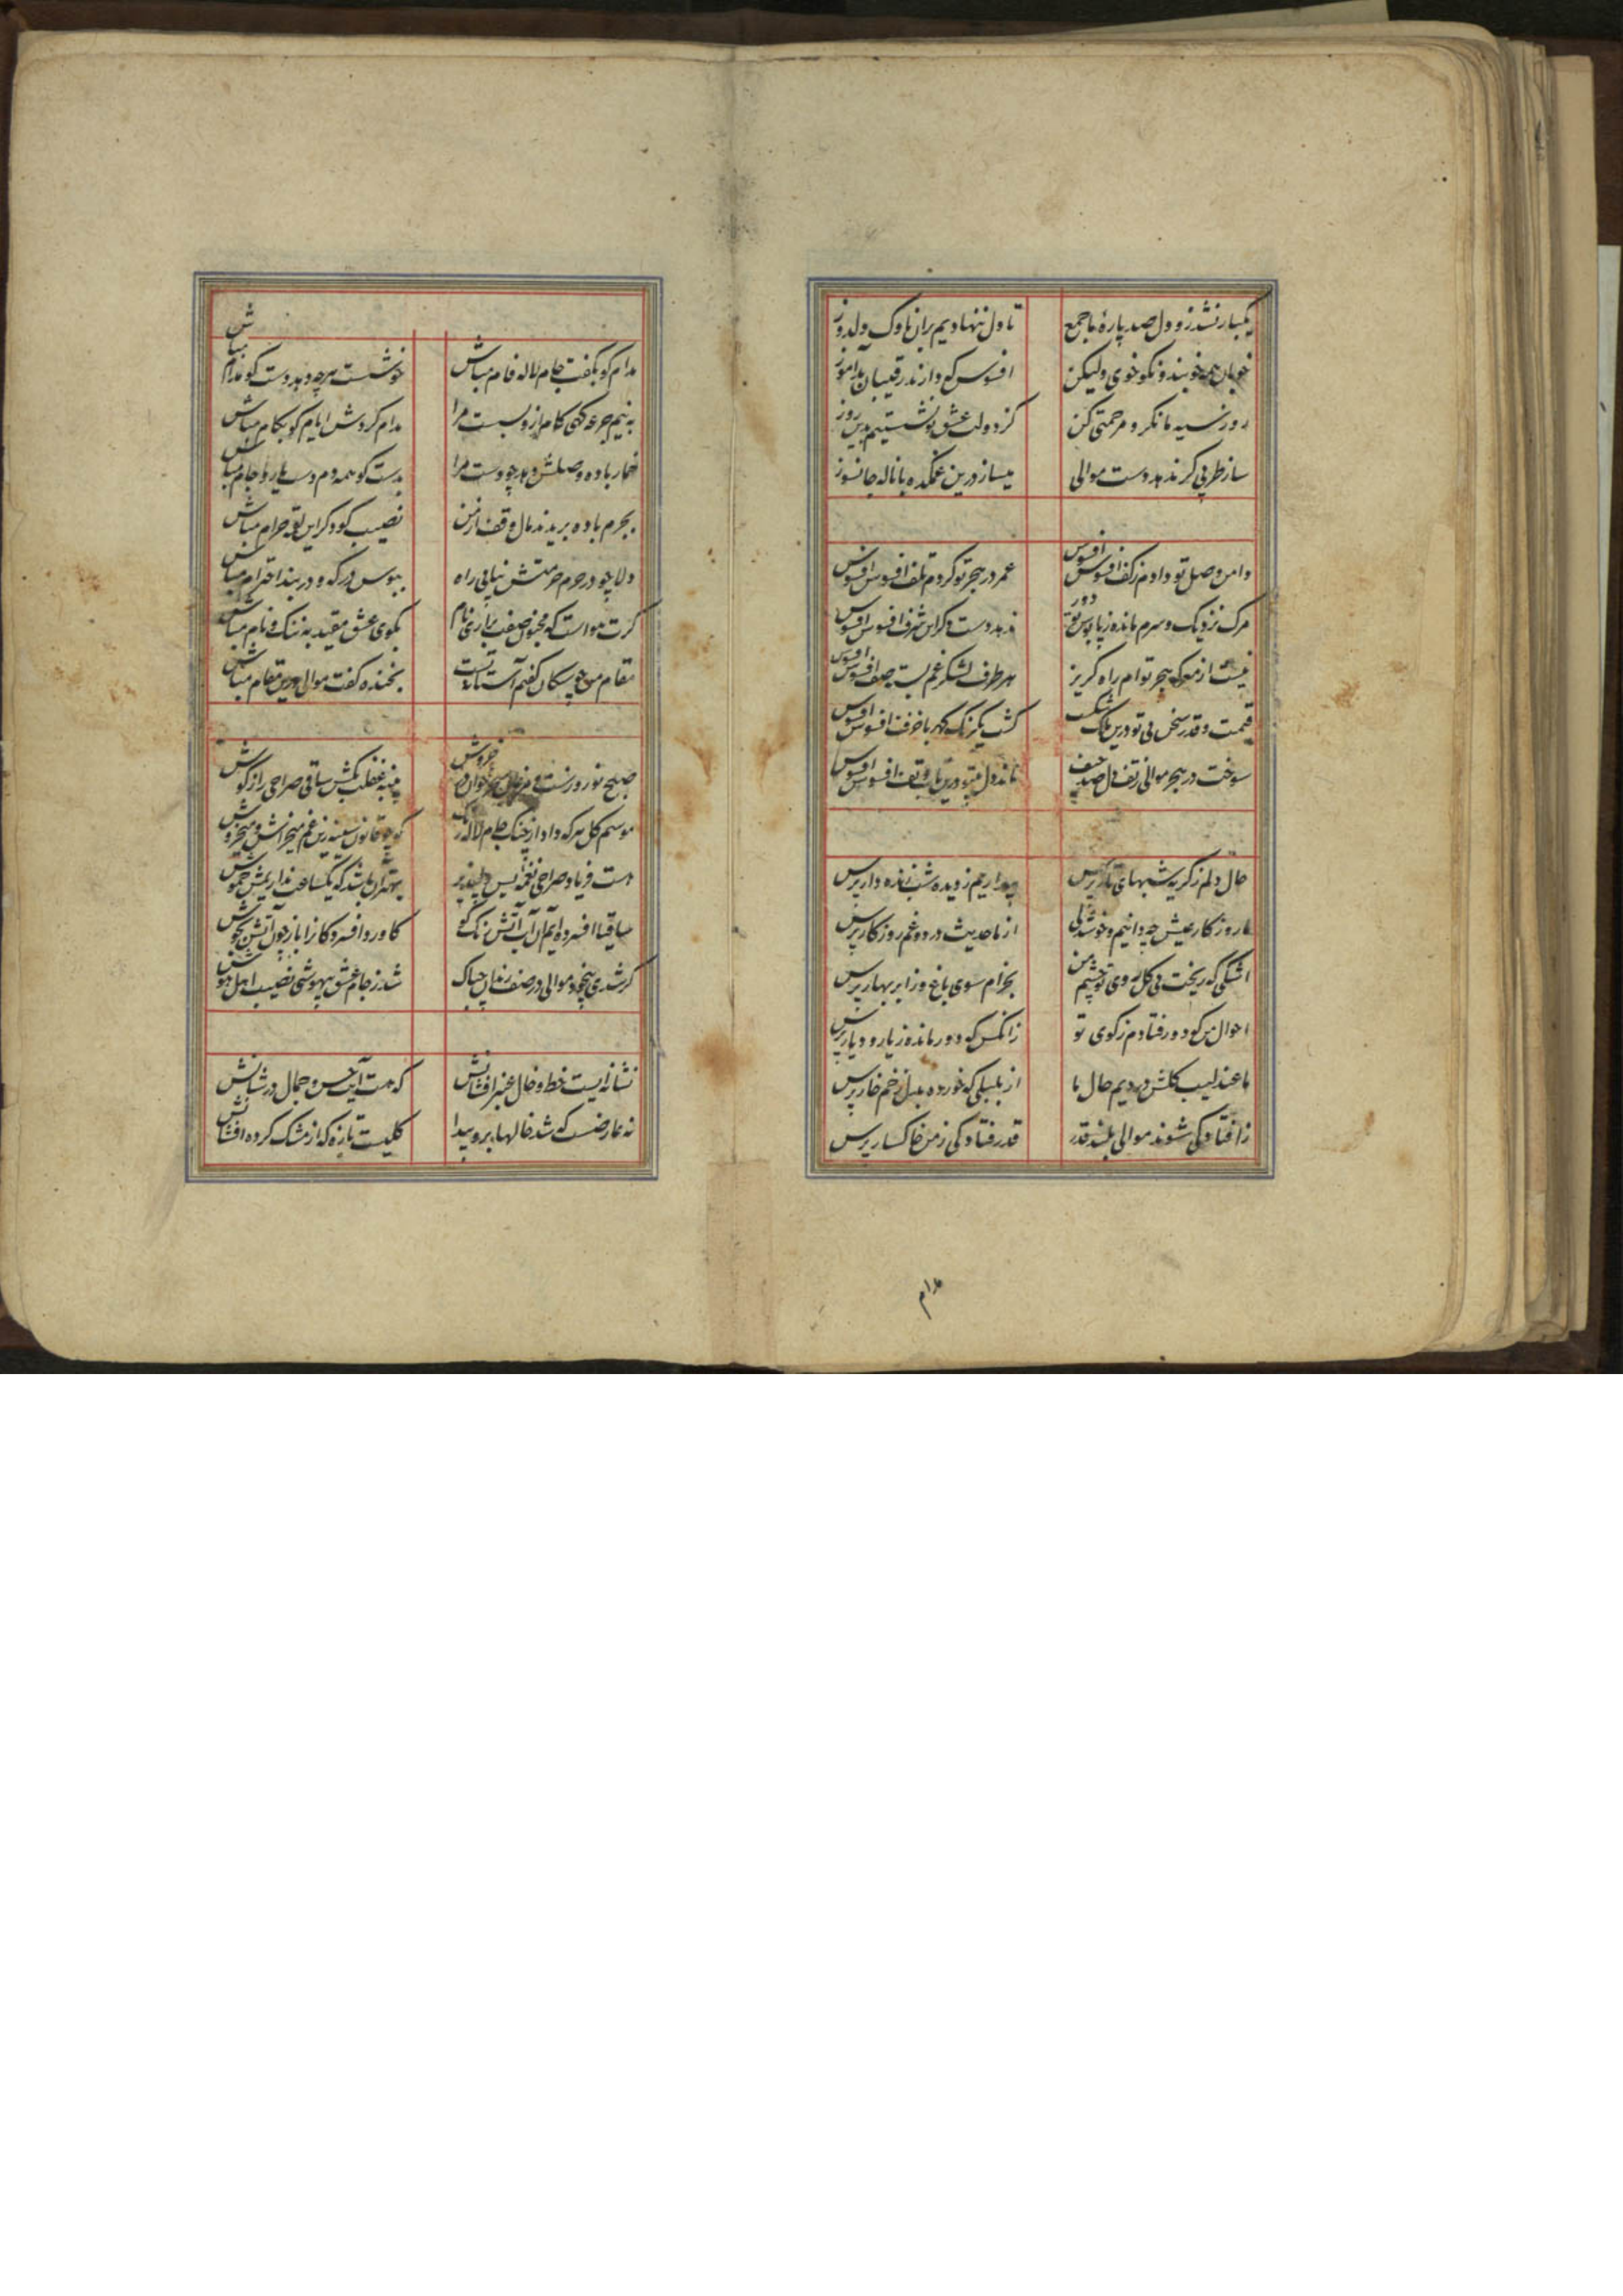 یکبار نشد زو دل صد پارهٔ ما جمع
تا دل ننهادیم بران ناوک دلدوز
خوبان همه خوبند و نکو خوی ولیکن
افسوس که دارند رقیبان بدآموز
روز سیه ما نکر و مرحمتی کن
کز دولت عشق تو نشستیم بدین روز
ساز طربی کر ندهد دست موالی
میساز درین غمکده با ناله جانسوز
دامن وصل تو دادم ز کف افسوس افسوس
عمر در هجر تو کردم تلف افسوس افسوس
مرک نزدیک و سرم مانده ز پابوس تو دور
ندهد دست دکر این شرف افسوس افسوس
نیست از معرکه هجر توام راه کریز
هر طرف لشکر غم بست صف افسوس افسوس
قیمت و قدر سخن بی تو درین ملک شکست
کشت یکرنک کهر با خزف افسوس افسوس
سوخت در هجر موالی ز تف دل صد حیف
ماند دل بیتو درین تاب و تف افسوس افسوس
حال دلم ز کریه شبهای تار پرس
بیداریم ز دیده شب زنده دار پرس
ما روزکار عیش چه دانیم و خوشدلی
از ما حدیث درد و غم روزکار پرس
اشکی که ریخت بی کل روی تو چشم من
بخرام سوی باغ و ز ابر بهار پرس
احوال من که دور فتادم ز کوی تو
زانکس که دور مانده ز یار و دیار پرس
ما عندلیب کلشن دردیم حال ما
از بلبلی که خورده بدل زخم خار پرس
ز افتادکی شوند موالی بلند قدر
قدر فتادکی ز من خاکسار پرس
مدام
مدام کو بکفت جام لاله فام مباش
خوشست هرچه دهد دست کو مدام مباش
به نیم جرعه که کام ازو بست مرا
مدام کردش ایام کو بکام مباش
خمار باده وصلش دهد چو دست مرا
بدست کو همه دم دست یار و جام مباش
بجرم باده بریدند مال وقف از من
نصیب کو دکر این لقمه حرام مباش
دلا چو در حرم حرمتش نیابی راه
ببوس درکه و در بند احترام مباش
کرت هواست که مجنون صفت براری نام
بکوی عشق مقید به ننک و نام مباش
مقام من چو سکان کفتم آستانه تست
بخنده کفت موالی درین مقام مباش
صبح نوروزست و مرغان سحرخوان در خروش
پنبه غفلت بکش ساقی صراحی را ز کوش
موسم کل هر که داد از چنک جام لاله رنک
کو چو قانون سینه زین غم میخراش و میخروش
هست فریاد صراحی نغمه بس دلپذیر
بهتر آن باشد که یکساعت نداریمش خموش
ساقیا افسرده ایم آن آب آتش رنک کو
کاورد افسردکانرا باز چون آتش بجوش
کر شدی بیخود موالی در صف رندان چه باک
شد ز جام عشق بیهوشی نصیب اهل هوش
نشانه ایست خط و خال عنبر افشانش
که هست آیت حسن و جمال در شانش
نه عارضست که شد خالها برو پیدا
کلیست تازه که از مشک کرده افشانش